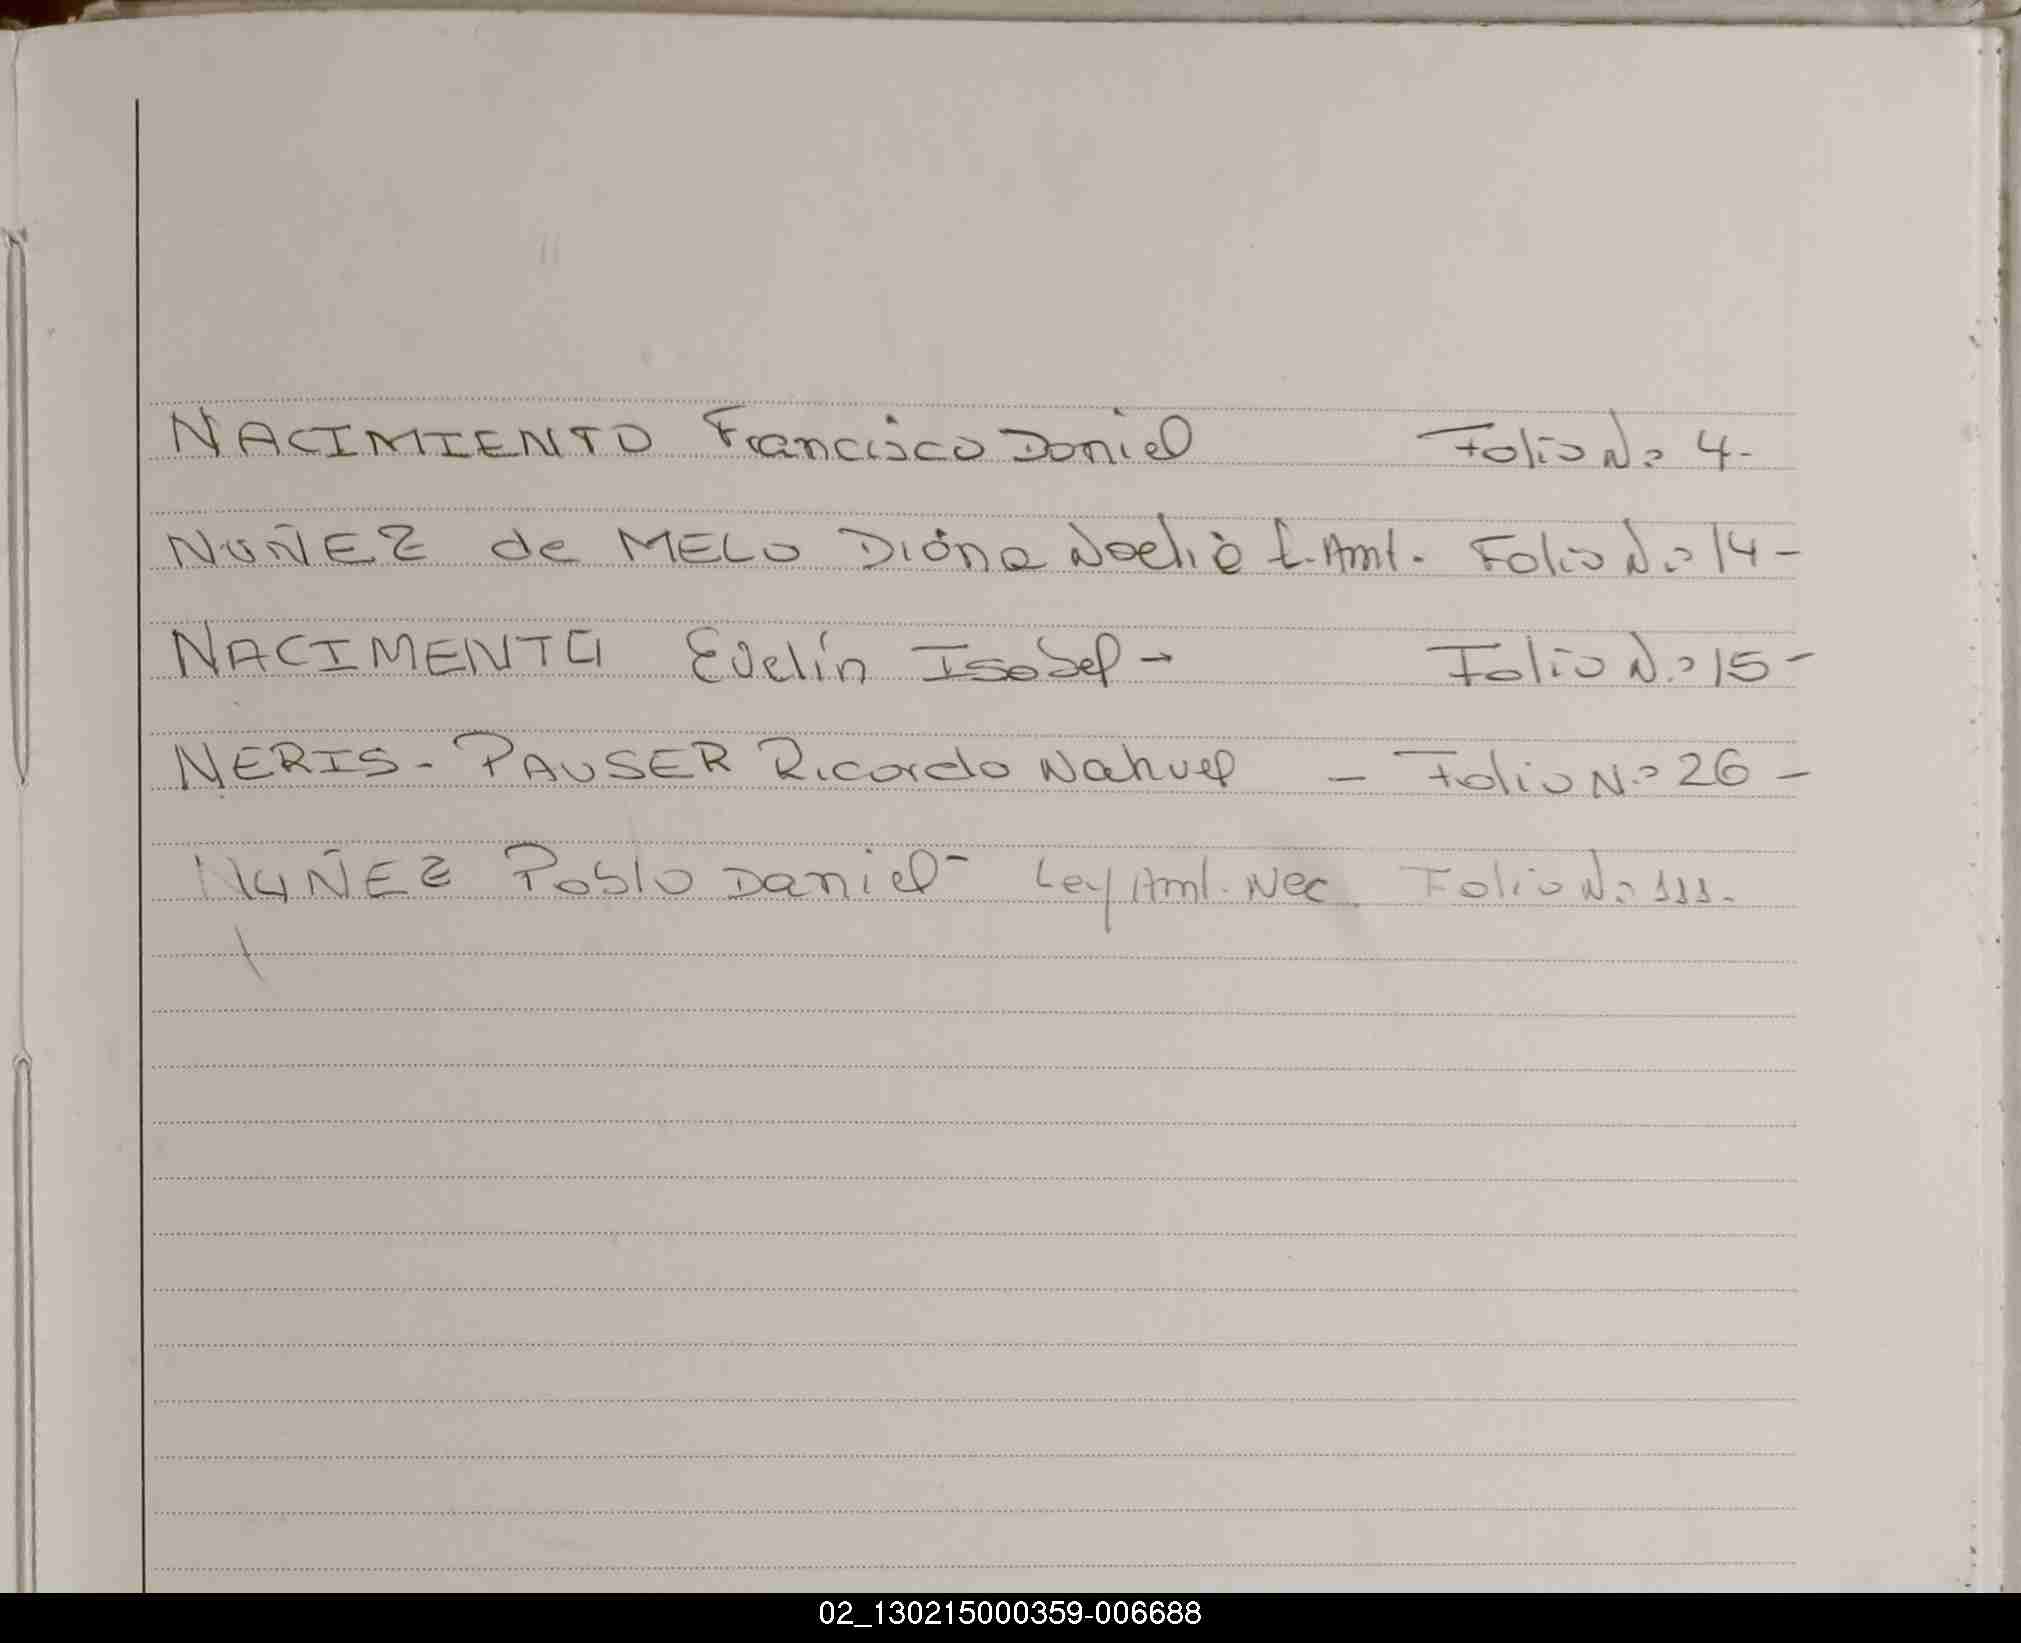 NACIMIENTO Francisco Daniel Folio N.º 4.
NUÑEZ de MELO Diána Noelia L.Amt. Folio N.º 14 -
NACIMENTO Evelín Isabel - Folio N.º 15 -
NERIS - PAUSER Ricardo Nahuel - Folio N.º 26 -
NUÑEZ Pablo Daniel - Ley Amt. Nec. Folio N.º 111.
02_130215000359-006688